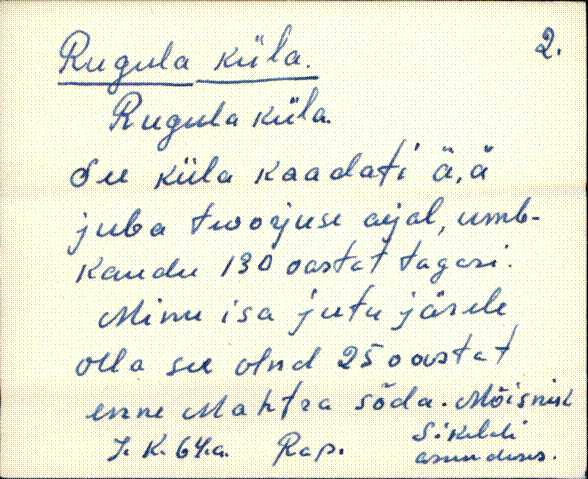 2.
Rugula küla.
Rugula küla.
See küla kaadati ä, ä
juba tworjuse ajal, umb-
kaudu 130 aastat tagasi.
Minu isa jutu järele
olla see olnd 25 aastat
enne Mahtra sõda. Mõisnik
J. K. 64.a. Rap.
asundises.